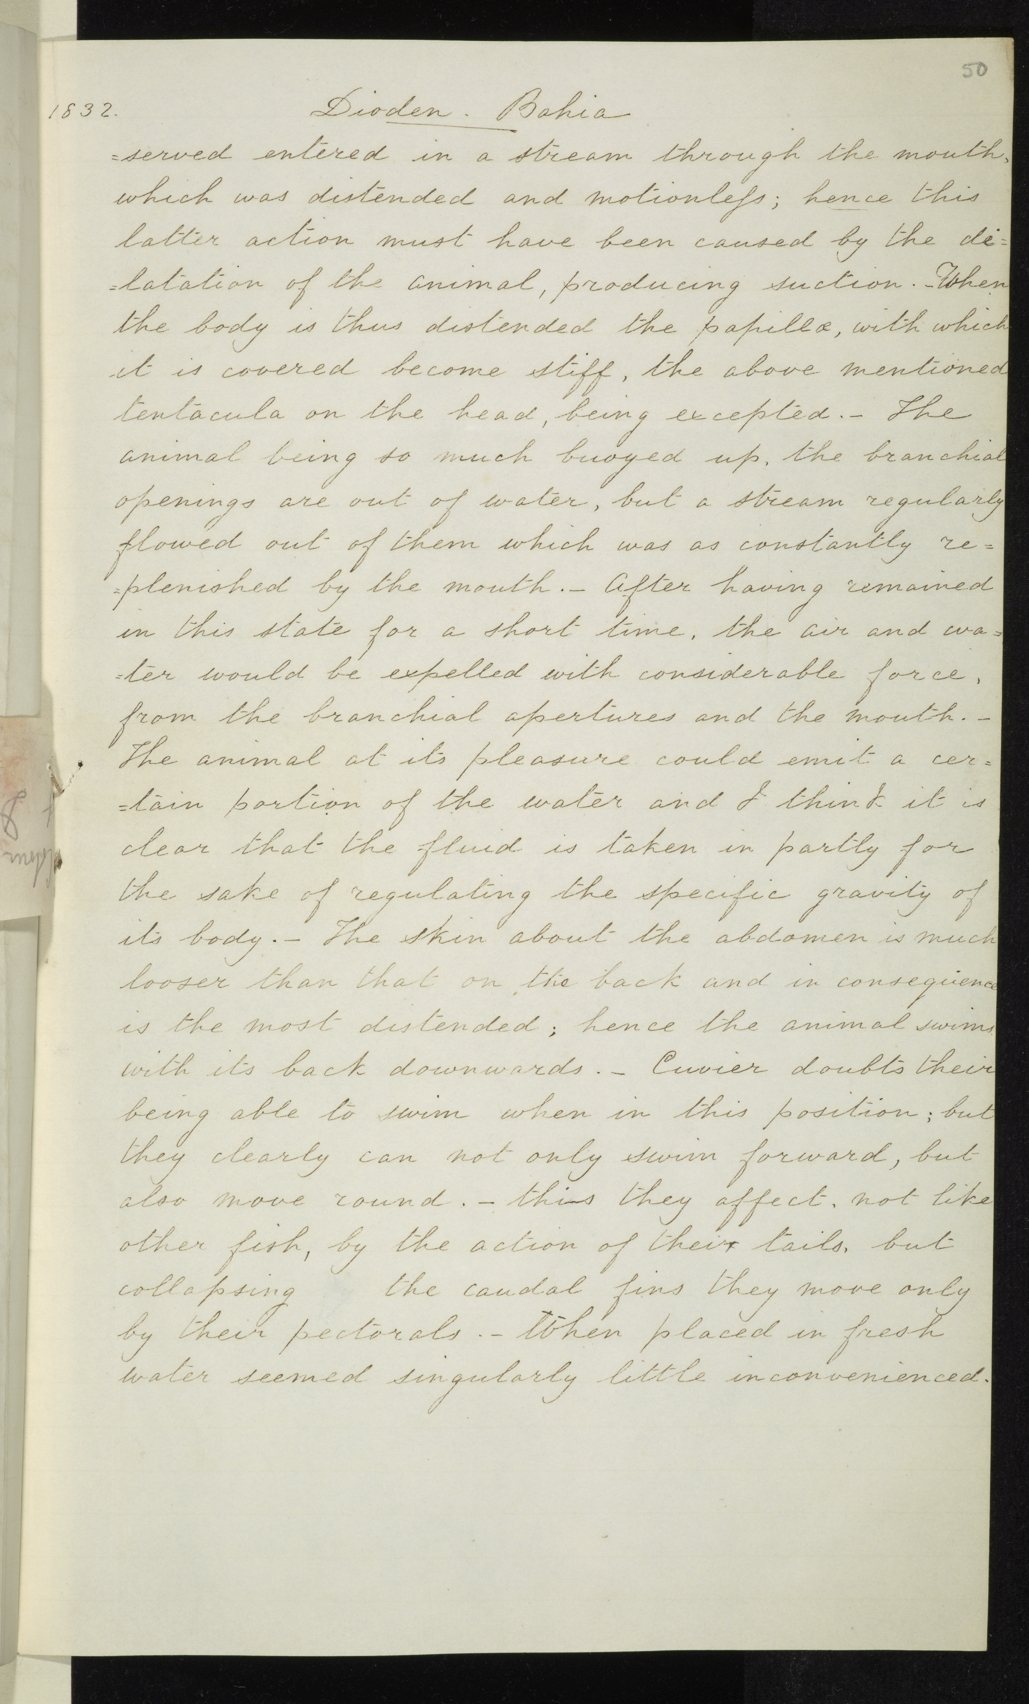 50
1832. Dioden. Bahia
=served entered in a stream through the mouth,
which was distended and motionless; hence this
latter action must have been caused by the di=
=latation of the animal, producing suction. - When
the body is thus distended the papillæ, with which
it is covered become stiff, the above mentioned
tentacula on the head, being excepted. - The
animal being so much buoyed up, the branchial
openings are out of water, but a stream regularly
flowed out of them which was as constantly re=
=plenished by the mouth. - After having remained
in this state for a short time, the air and wa=
=ter would be expelled with considerable force,
from the branchial apertures and the mouth. -
The animal at its pleasure could emit a cer=
=tain portion of the water and I think it is
clear that the fluid is taken in partly for
the sake of regulating the specific gravity of
its body. - The skin about the abdomen is much
looser than that on the back and in consequence
is the most distended; hence the animal swims
with its back downwards. - Cuvier doubts their
being able to swim when in this position; but
they clearly can not only swim forward, but
also move round. - this they affect, not like
other fish, by the action of their tails, but
collapsing the caudal fins they move only
by their pectorals. - When placed in fresh
water seemed singularly little inconvenienced.